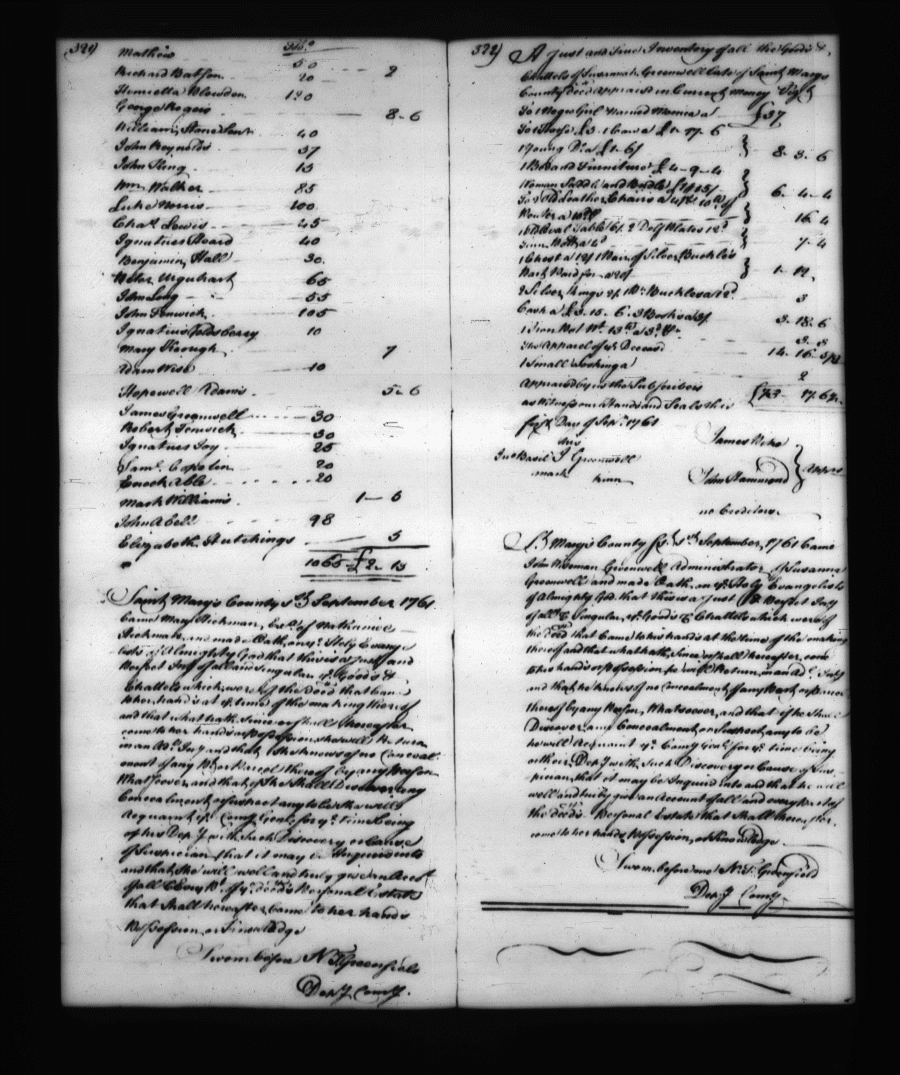 321)
Mathew 50
Richard Batson 20 2
Henrietta Plowden 120
George Rogers 8-6
William Stone 40
John Reynolds 37
John King 15
Wm. Walker 85
Luke Norris 100
Chas. Lewis 45
Ignatius Board 40
Benjamin Hall 30
Peter Urquhart 65
John Long 55
John Fenwick 105
Ignatius Goldsberry 10
Mary Keough 7
Adam Wise 10
Hopewell Adams 5-6
James Greenwell 30
Robert Fenwick 30
Ignatius Joy 25
Saml. 20
Enoch Able 20
Mark Williams 1-6
John Abell 98
Elizabeth Hutchings 5
1065 £2-13
Saint Mary's County September 1761
Came Mary Hickman, of
Hickman and made Oath, on ye. Holy Evange
lists of Almighty God that this is a just and
Perfect Invy of all and singular ye. Goods &
Chattels which were of the decd that came
to her hands at ye. time of the making thereof
and that what hath since or shall hereafter
come to her hands or Possession she will return
in an Adl. Invy and that she knows of no Conceal
ment of any part or Parcel thereof by any Person
Whatsoever, and that if she Shall Discover any
Concealment or suspect any to be she will
acquaint ye. Comy Genl. for ye. time being
or his Depy with such Discovery or Cause
of Suspician that it may be Inquired into
and that she will well and truly give an Acct
of all & every Pt. of ye. decds Personal Estate
that shall hereafter come to her hands
Possession or Knowledge
Sworn before N T Greenfield
Depy Comy.
322)
A Just and True Inventory of all the Goods &
Chattels of Susannah Greenwell late of Saint Marys
County decd appraised in Current Money Vizt
To 1 Negro Girl Named Monica a £37
To 1 Horse £3. 1 Cow a £1-17-6
1 Young Do. a £1-6/ 8-3-6
1 Bed and Furniture £4-9-4
1 Woman Saddle and Bridle 6-4-4
To 5 Old Leather Chairs a
Pewter a 10d 16-4
1 Old Oval Table 6/. 2 Delf Plates 12d
7-4
1 Chest a 12/ 1 Pair of Silver Buckles
1-12
2 Silver Rings 2/. 1 Pr. Buckles a 12d. 3
Cash a £3-15-6. 3 Books a 3/ 3-18-6
1 Iron Pot Wt. 13 3-3
The Apparel of ye Deceasd 14-16-
1 Small Looking 2
Appraised by us the Subscribers £73-17-6
as Witness our Hands and Seals this
first Day of Sepr. 1761
his James
Basil J Greenwell
mark John Hammond Apprs
kinn
no Creditors
St Mary's County September, 1761 Came
John Norman Greenwell Administrator of Susanna
Greenwell and made Oath on ye. Holy Evangelists
of Almighty God that this is a Just & Perfect Invy
of all & Singular, ye. Goods & Chattels which were of
the decd that Came to his hands at the time of the making
thereof and that what hath, Since or shall hereafter, come
to his hands or Possession he will Return in an Adl. Invy
and that he knows of no Concealment of any Part or Parcel
thereof by any Person Whatsoever, and that if he Shall
Discover any Concealment or Suspect, any to be
he will Acquaint ye. Comy Genl. for ye. time being
or their Depy with such Discovery or Cause of Sus
pician, that it may be Inquired into and that he will
well and truly give an Account of all and every Part of
the decds. Personal Estate that Shall hereafter
come to her hands, Possession, or Knowledge
Sworn before me N. T. Greenfield
Depy Comy.